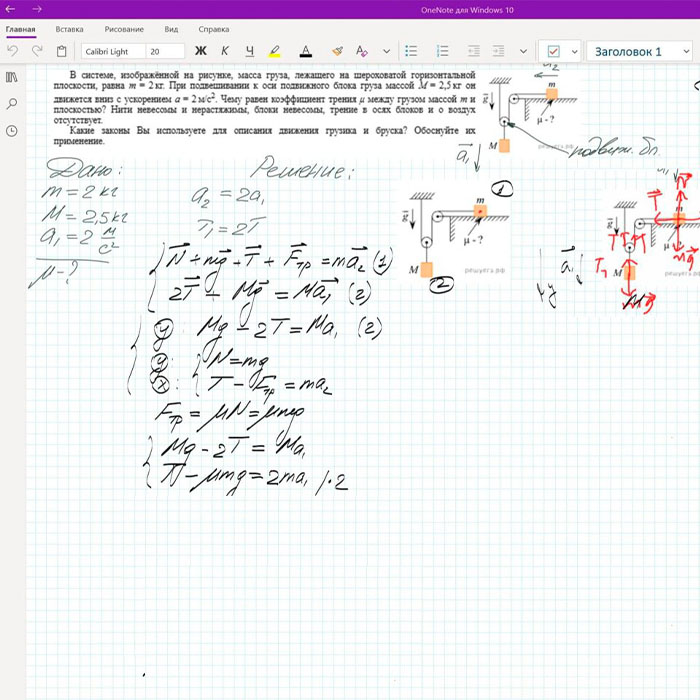 OneNote для Windows 10
Главная Вставка Рисование Вид Справка
Calibri Light 20 Ж К Ч А Заголовок 1
В системе, изображённой на рисунке, масса груза, лежащего на шероховатой горизонтальной
плоскости, равна m = 2 кг. При подвешивании к оси подвижного блока груза массой M = 2,5 кг он
движется вниз с ускорением a = 2 м/с². Чему равен коэффициент трения μ между грузом массой m и
плоскостью? Нити невесомы и нерастяжимы, блоки невесомы, трение в осях блоков и о воздух
отсутствует.
Какие законы Вы используете для описания движения грузика и бруска? Обоснуйте их
применение.
a₂
m
g
μ - ?
M
a₁
подвижн. бл.
Дано:
m = 2 кг
M = 2,5 кг
a₁ = 2 м/с²
μ - ?
Решение:
a₂ = 2a₁
T₁ = 2T
N + mg + T + Fтр = ma₂ (1)
2T + Mg = Ma₁ (2)
y: Mg - 2T = Ma₁ (2)
y: N = mg
x: T - Fтр = ma₂
Fтр = μN = μmg
Mg - 2T = Ma₁
T - μmg = 2ma₁ |·2
1
m
g
μ - ?
M
2
решуегэ.рф
N
T
m
g
μ - ?
mg
T T
T₁
M
Mg
a₁
y
решуегэ.рф